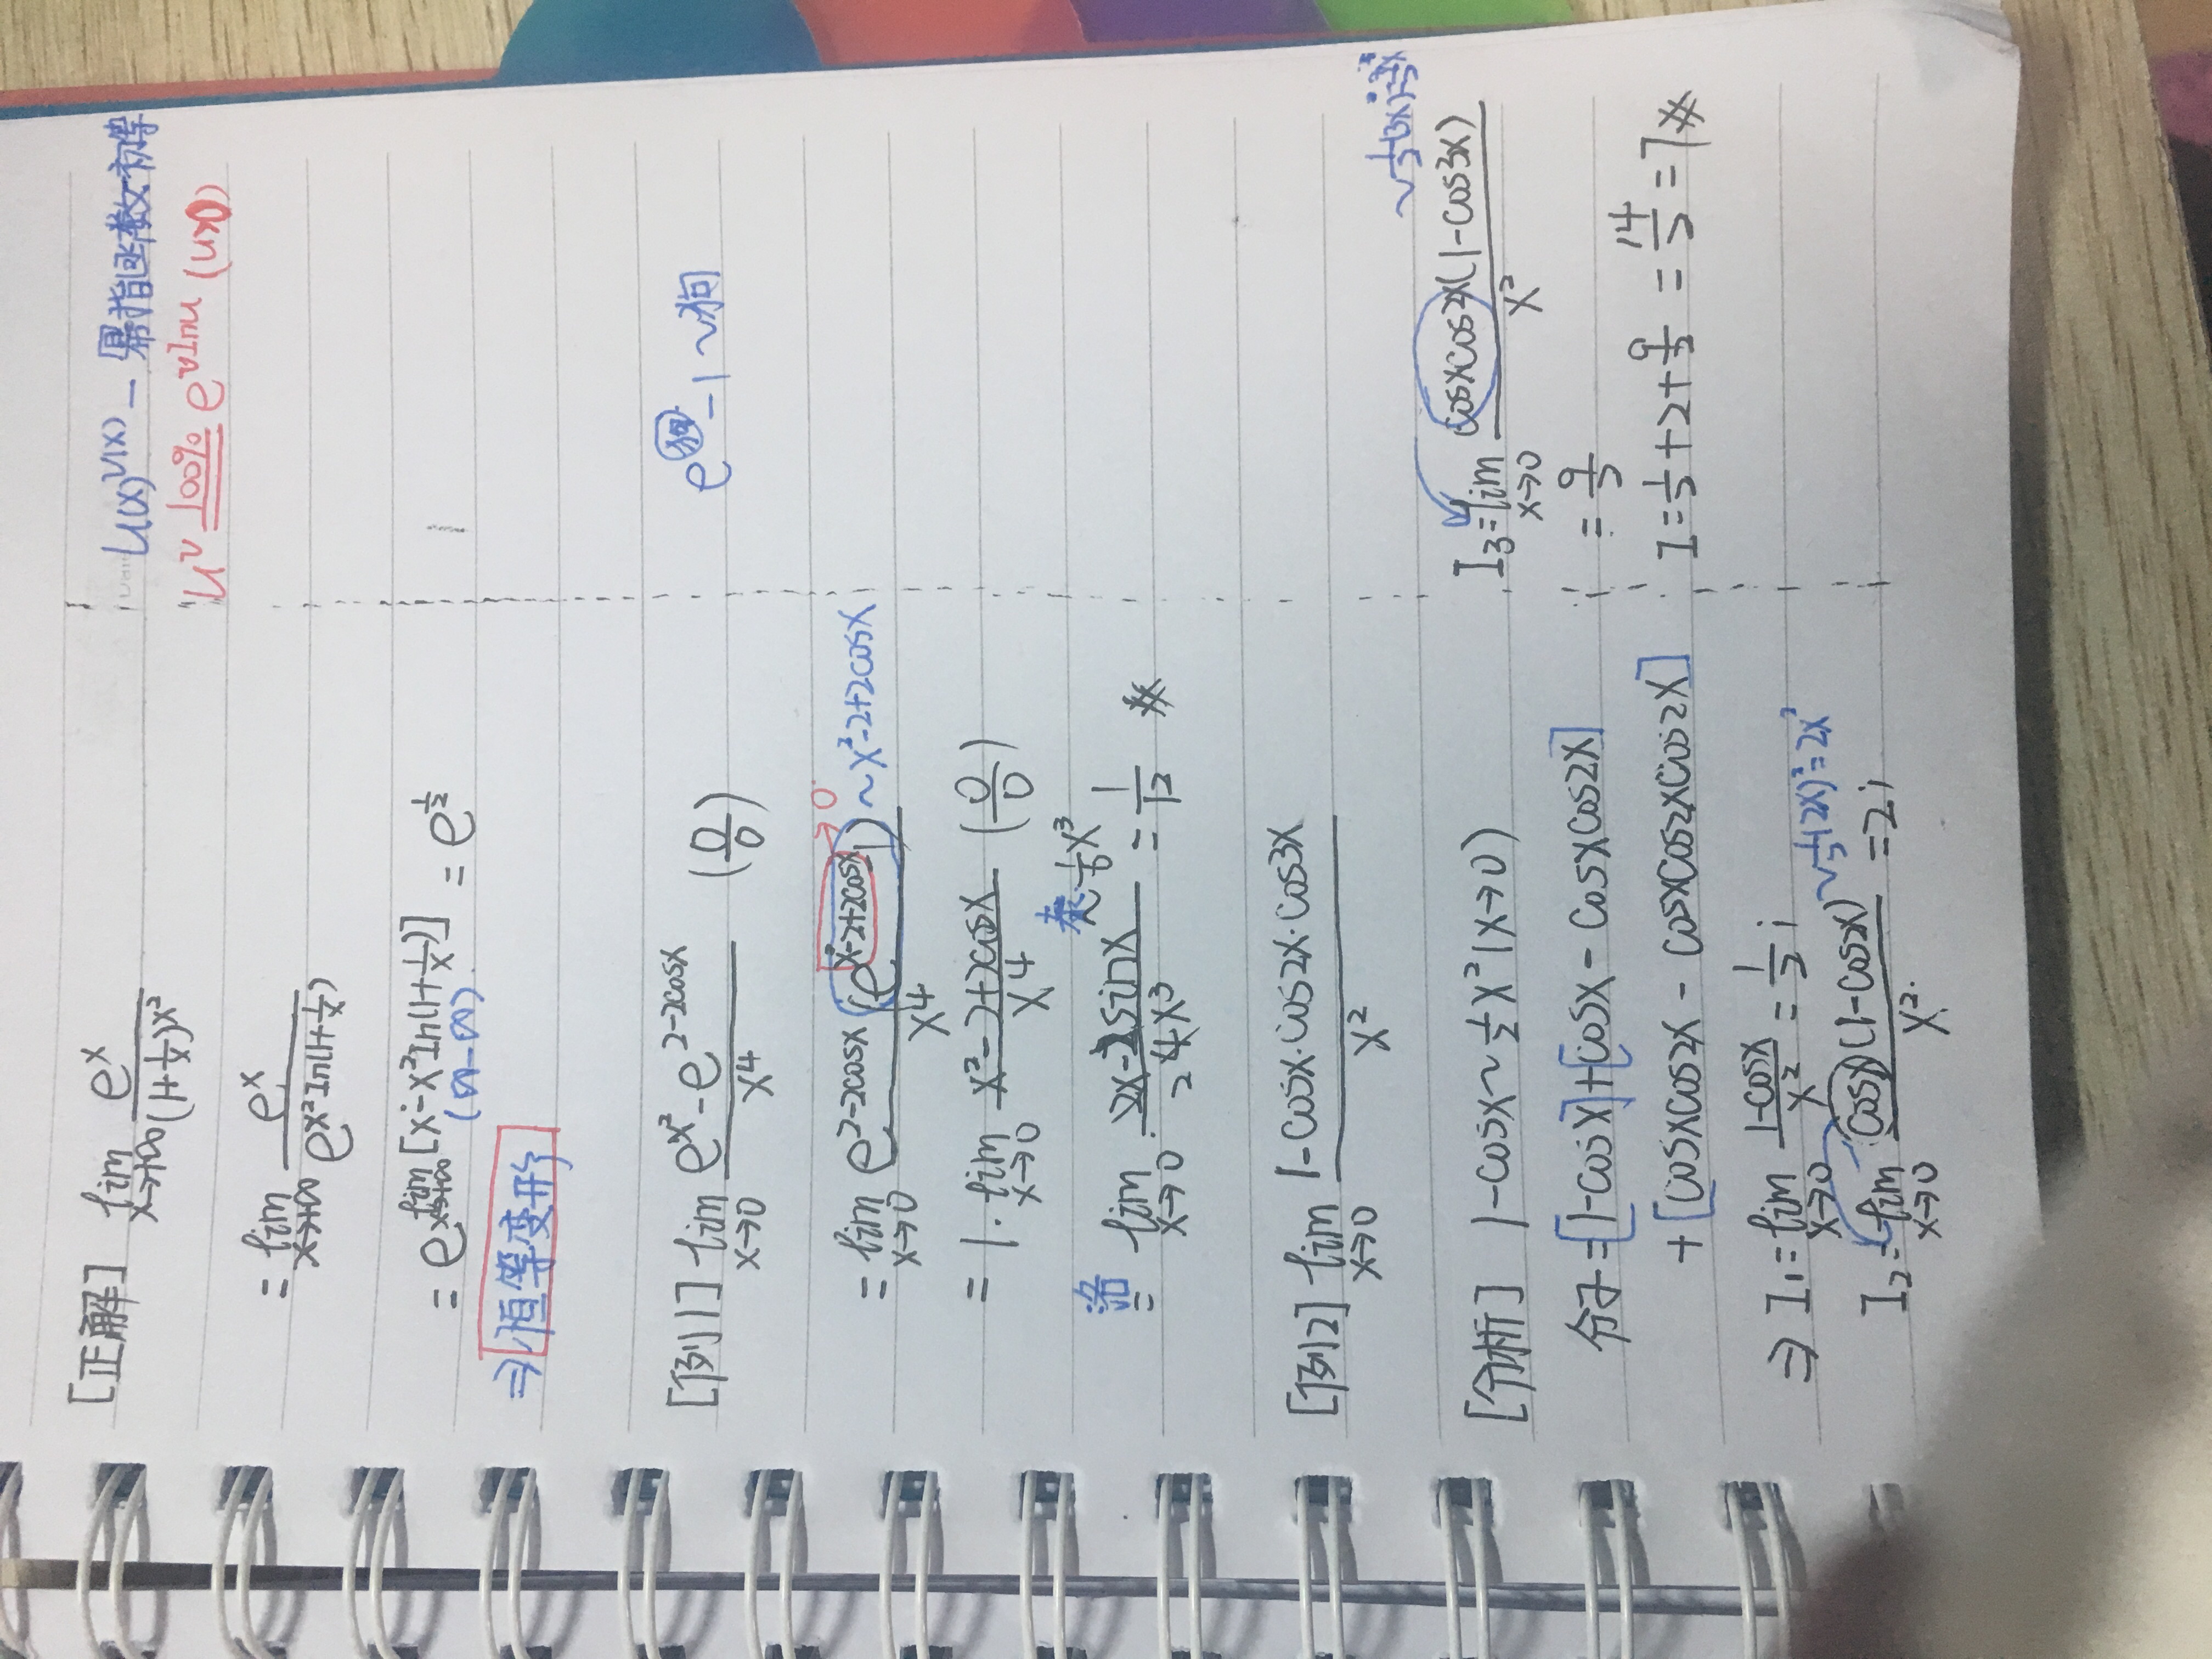 [正解] lim x→+∞ e^x/(1+1/x)^x²
u(x)^v(x) — 幂指函数 初等
u^v 100% e^vlnu (u>0)
= lim x→+∞ e^x/e^x²ln(1+1/x)
= e^lim x→+∞ [x-x²ln(1+1/x)] = e^1/2
(∞-∞)
⇒ 恒等变形
[例1] lim x→0 (e^x²-e^2-2cosx)/x⁴ (0/0)
e^狗-1~狗
= lim x→0 e^2-2cosx(e^x²-2+2cosx-1)/x⁴ ~x²-2+2cosx
→0
= 1·lim x→0 (x²-2+2cosx)/x⁴ (0/0)
洛= lim x→0 (2x-2sinx)/4x³ 泰·1/6x³ = 1/12
[例2] lim x→0 (1-cosx·cos2x·cos3x)/x²
[分析] 1-cosx~1/2x² (x→0)
分子=[1-cosx]+[cosx-cosxcos2x]
+[cosxcos2x-cosxcos2xcos3x]
⇒ I₁=lim x→0 (1-cosx)/x²=1/2;
~1/2(2x)²=2x²
I₂=lim x→0 cosx(1-cos2x)/x²=2;
~1/2(3x)²=9/2x²
I₃=lim x→0 cosxcos2x(1-cos3x)/x²
=9/2
I=1/2+2+9/2=14/2=7